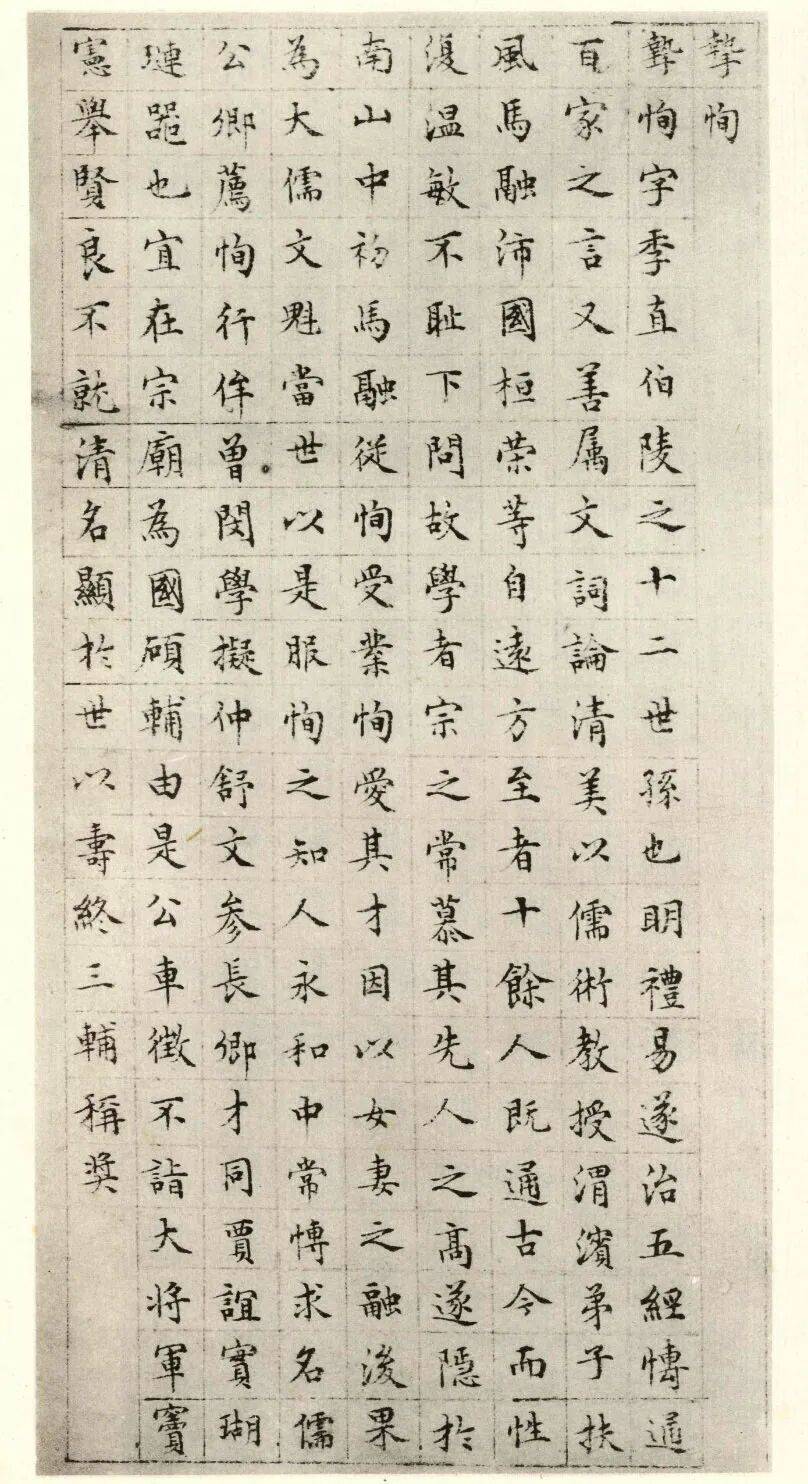 摯恂
摯恂字季直伯陵之十二世孫也明禮易遂治五經博通
百家之言又善属文詞論清美以儒術教授渭濱弟子扶
風馬融沛國桓荣等自遠方至者十餘人既通古今而性
復温敏不耻下問故學者宗之常慕其先人之高遂隱於
南山中初馬融從恂受業恂愛其才因以女妻之融後果
為大儒文魁當世以是服恂之知人永和中常博求名儒
公卿薦恂行侔曾閔學擬仲舒文参長卿才同賈誼實瑚
璉器也宜在宗廟為國碩輔由是公車徵不詣大将軍竇
憲舉賢良不就清名顯於世以壽終三輔稱奖